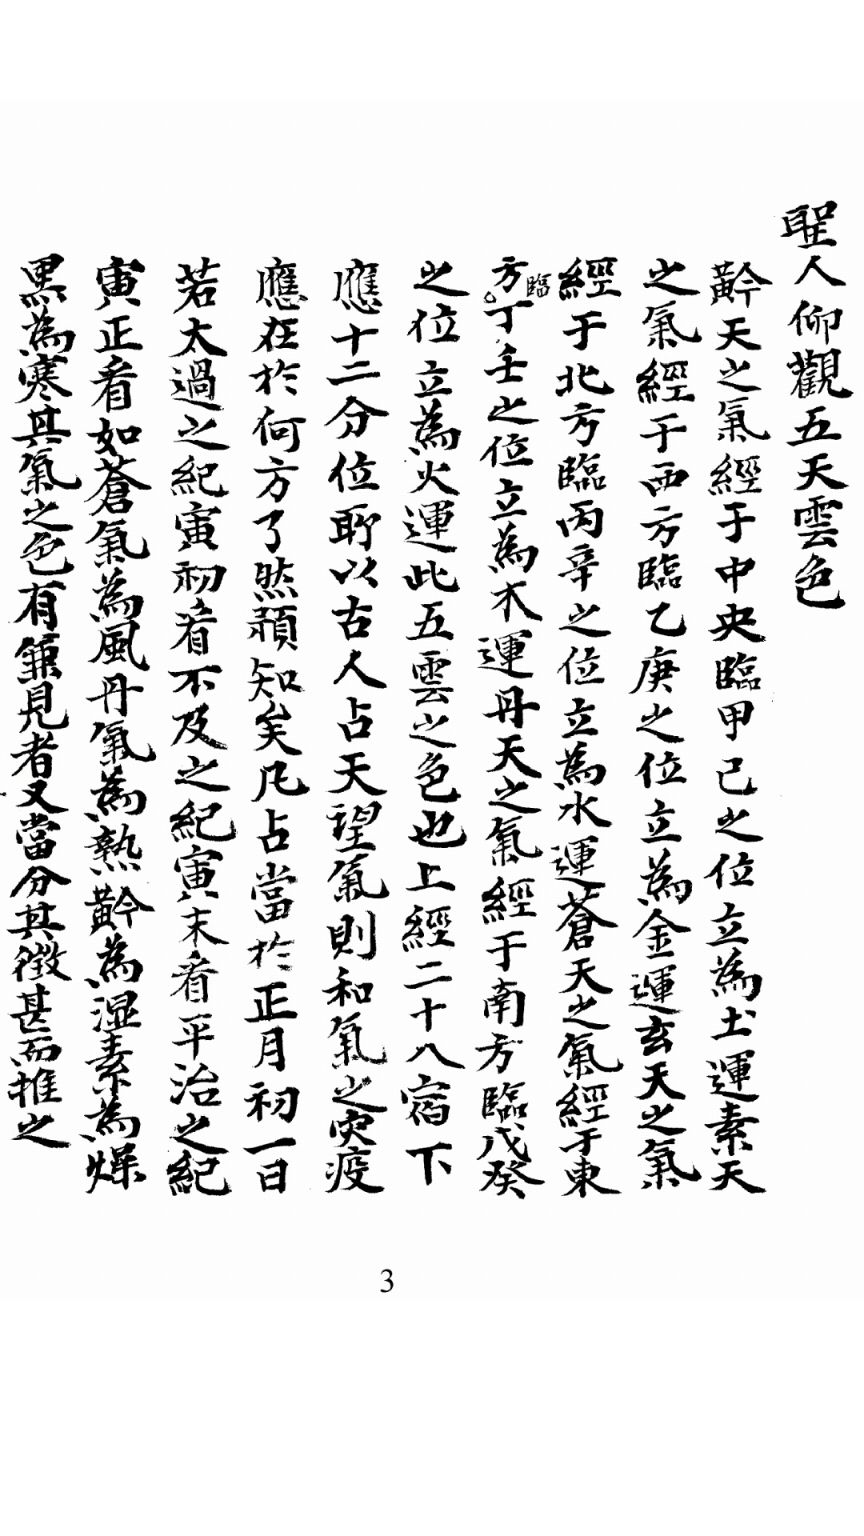 聖人仰觀五天雲色
黅天之氣經于中央臨甲己之位立為土運素天
之氣經于西方臨乙庚之位立為金運玄天之氣
經于北方臨丙辛之位立為水運蒼天之氣經于東
方臨丁壬之位立為木運丹天之氣經于南方臨戊癸
之位立為火運此五雲之色也上經二十八宿下
應十二分位所以古人占天望氣則和氣之灾疫
應在於何方了然預知矣凡占當於正月初一日
若太過之紀寅初看不及之紀寅末看平治之紀
寅正看如蒼氣為風丹氣為熱黅為湿素為燥
黒為寒其氣之色有兼見者又當分其微甚而推之
3